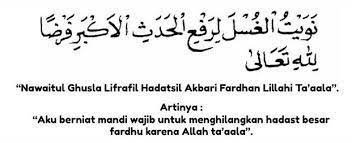 نَوَيْتُ الْغُسْلَ لِرَفْعِ الْحَدَثِ الْاَكْبَرِ فَرْضًا
لِلّٰهِ تَعَالىٰ
“Nawaitul Ghusla Lifrafil Hadatsil Akbari Fardhan Lillahi Ta'aala”.
Artinya :
“Aku berniat mandi wajib untuk menghilangkan hadast besar
fardhu karena Allah ta'aala”.